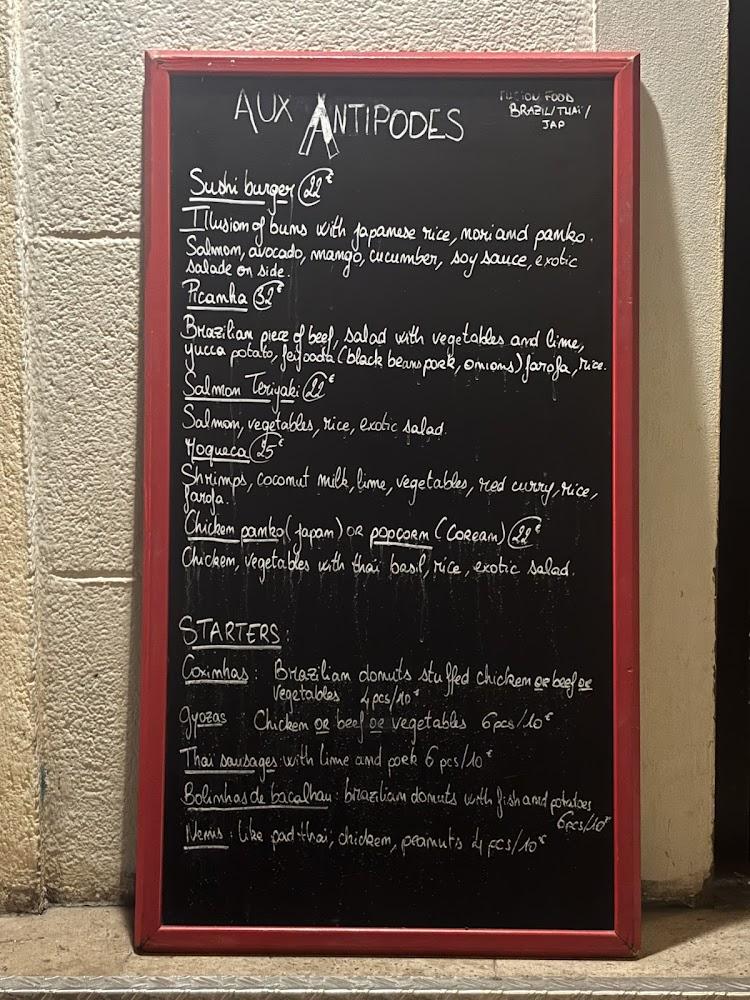 AUX ANTIPODES
FUSION FOOD
BRAZIL/THAÏ/
JAP
Sushi burger 22€
Illusion of buns with japanese rice, nori and panko.
Salmon, avocado, mango, cucumber, soy sauce, exotic
salade on side.
Picanha 32€
Brazilian piece of beef, salad with vegetables and lime,
yucca potato, feijoada (black beans pork, onions) farofa, rice.
Salmon Teriyaki 22€
Salmon, vegetables, rice, exotic salad.
Moqueca 25€
Shrimps, coconut milk, lime, vegetables, red curry, rice,
farofa.
Chicken panko (japan) OR popcorn (Corean) 22€
Chicken, vegetables with thaï basil, rice, exotic salad.
STARTERS:
Coxinhas: Brazilian donuts stuffed chicken or beef or
vegetables 4pcs/10€
Gyozas Chicken or beef or vegetables 6pcs/10€
Thaï sausages: with lime and pork 6 pcs/10€
Bolinhas de bacalhau: brazilian donuts with fish and potatoes
6pcs/10€
Nems: like pad-thaï; chicken, peanuts 4 pcs/10€